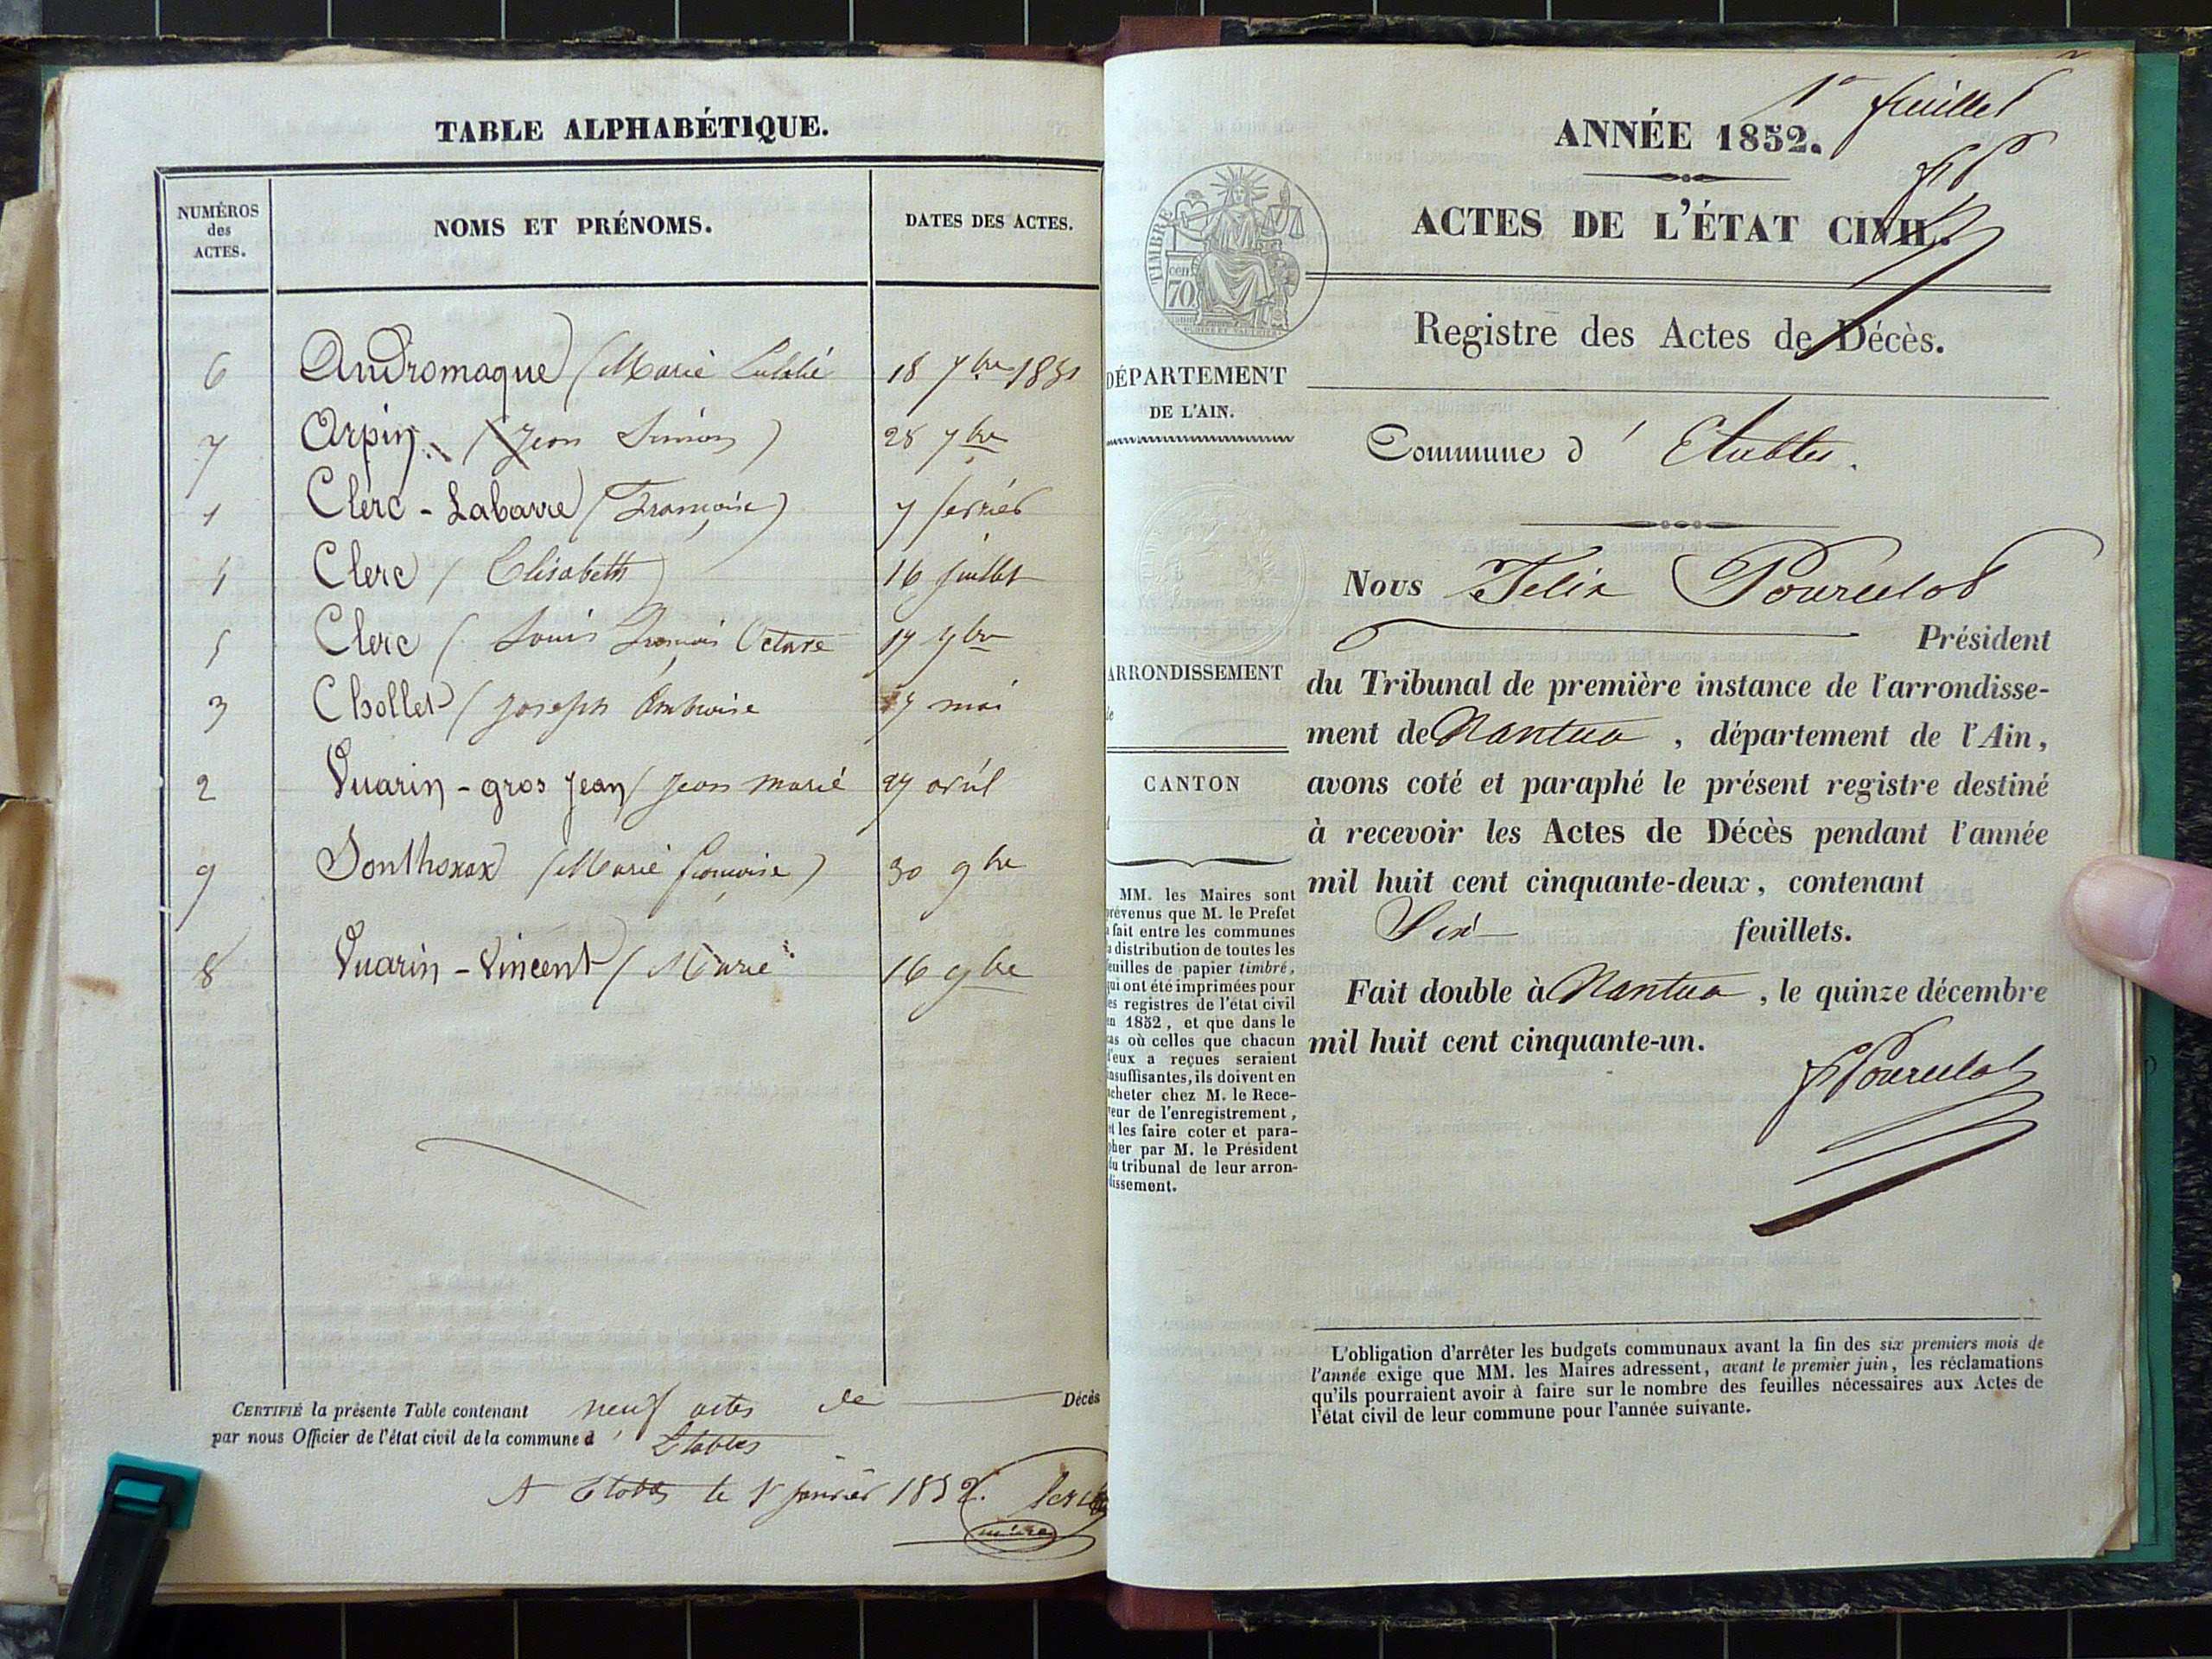 TABLE ALPHABÉTIQUE.
NUMÉROS
des
ACTES.
NOMS ET PRÉNOMS.
DATES DES ACTES.
6 Andromaque (Marie 18 7bre 1851
7 Arpin (Jean Simon) 28 7bre
1 Clerc - Labarre (Françoise) 7 février
4 Clerc (Elisabeth) 16 juillet
5 Clerc (Louis François Octave 17 7bre
3 Chollet (Joseph Ambroise 17 mai
2 Vuarin - gros jean (Jean Marie 27 avril
9 Sonthonax (Marie françoise) 30 9bre
8 Vuarin - Vincent (Marie 16 9bre
CERTIFIÉ la présente Table contenant neuf actes de Décès
par nous Officier de l'état civil de la commune d'Etables
A Etables le 1r janvier 1852.
maire
1er feuillet
ANNÉE 1852.
ACTES DE L'ÉTAT CIVIL.
Registre des Actes de Décès.
TIMBRE
70 cen
DÉPARTEMENT
DE L'AIN.
Commune d'Etables.
Nous Felix Pourcelot
Président
du Tribunal de première instance de l'arrondisse-
ment de Nantua, département de l'Ain,
avons coté et paraphé le présent registre destiné
à recevoir les Actes de Décès pendant l'année
mil huit cent cinquante-deux, contenant
Six feuillets.
Fait double à Nantua, le quinze décembre
mil huit cent cinquante-un.
FPourcelot
ARRONDISSEMENT
CANTON
MM. les Maires sont
prévenus que M. le Prefet
a fait entre les communes
la distribution de toutes les
feuilles de papier timbré,
qui ont été imprimées pour
les registres de l'état civil
en 1852, et que dans le
cas où celles que chacun
d'eux a reçues seraient
insuffisantes, ils doivent en
acheter chez M. le Rece-
veur de l'enregistrement,
et les faire coter et para-
pher par M. le Président
du tribunal de leur arron-
dissement.
L'obligation d'arrêter les budgets communaux avant la fin des six premiers mois de
l'année exige que MM. les Maires adressent, avant le premier juin, les réclamations
qu'ils pourraient avoir à faire sur le nombre des feuilles nécessaires aux Actes de
l'état civil de leur commune pour l'année suivante.